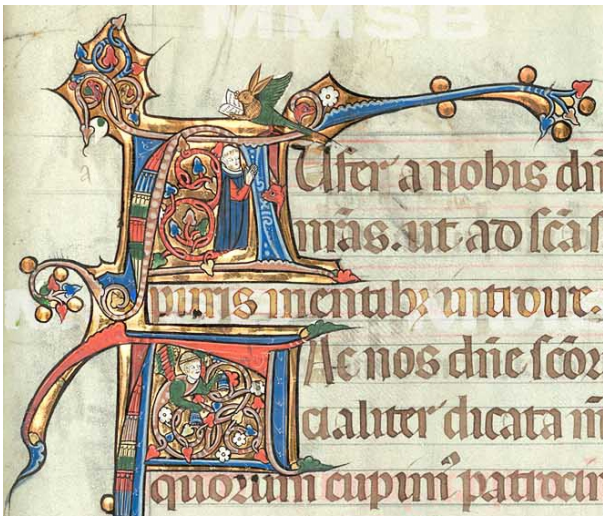 MMSB
AUfer a nobis dñ
nr̃as. ut ad sc̃as
puris mentibꝫ introire.
FAc nos dñe scõr
cialiter dicata m
quorum cupimꝰ patrocin